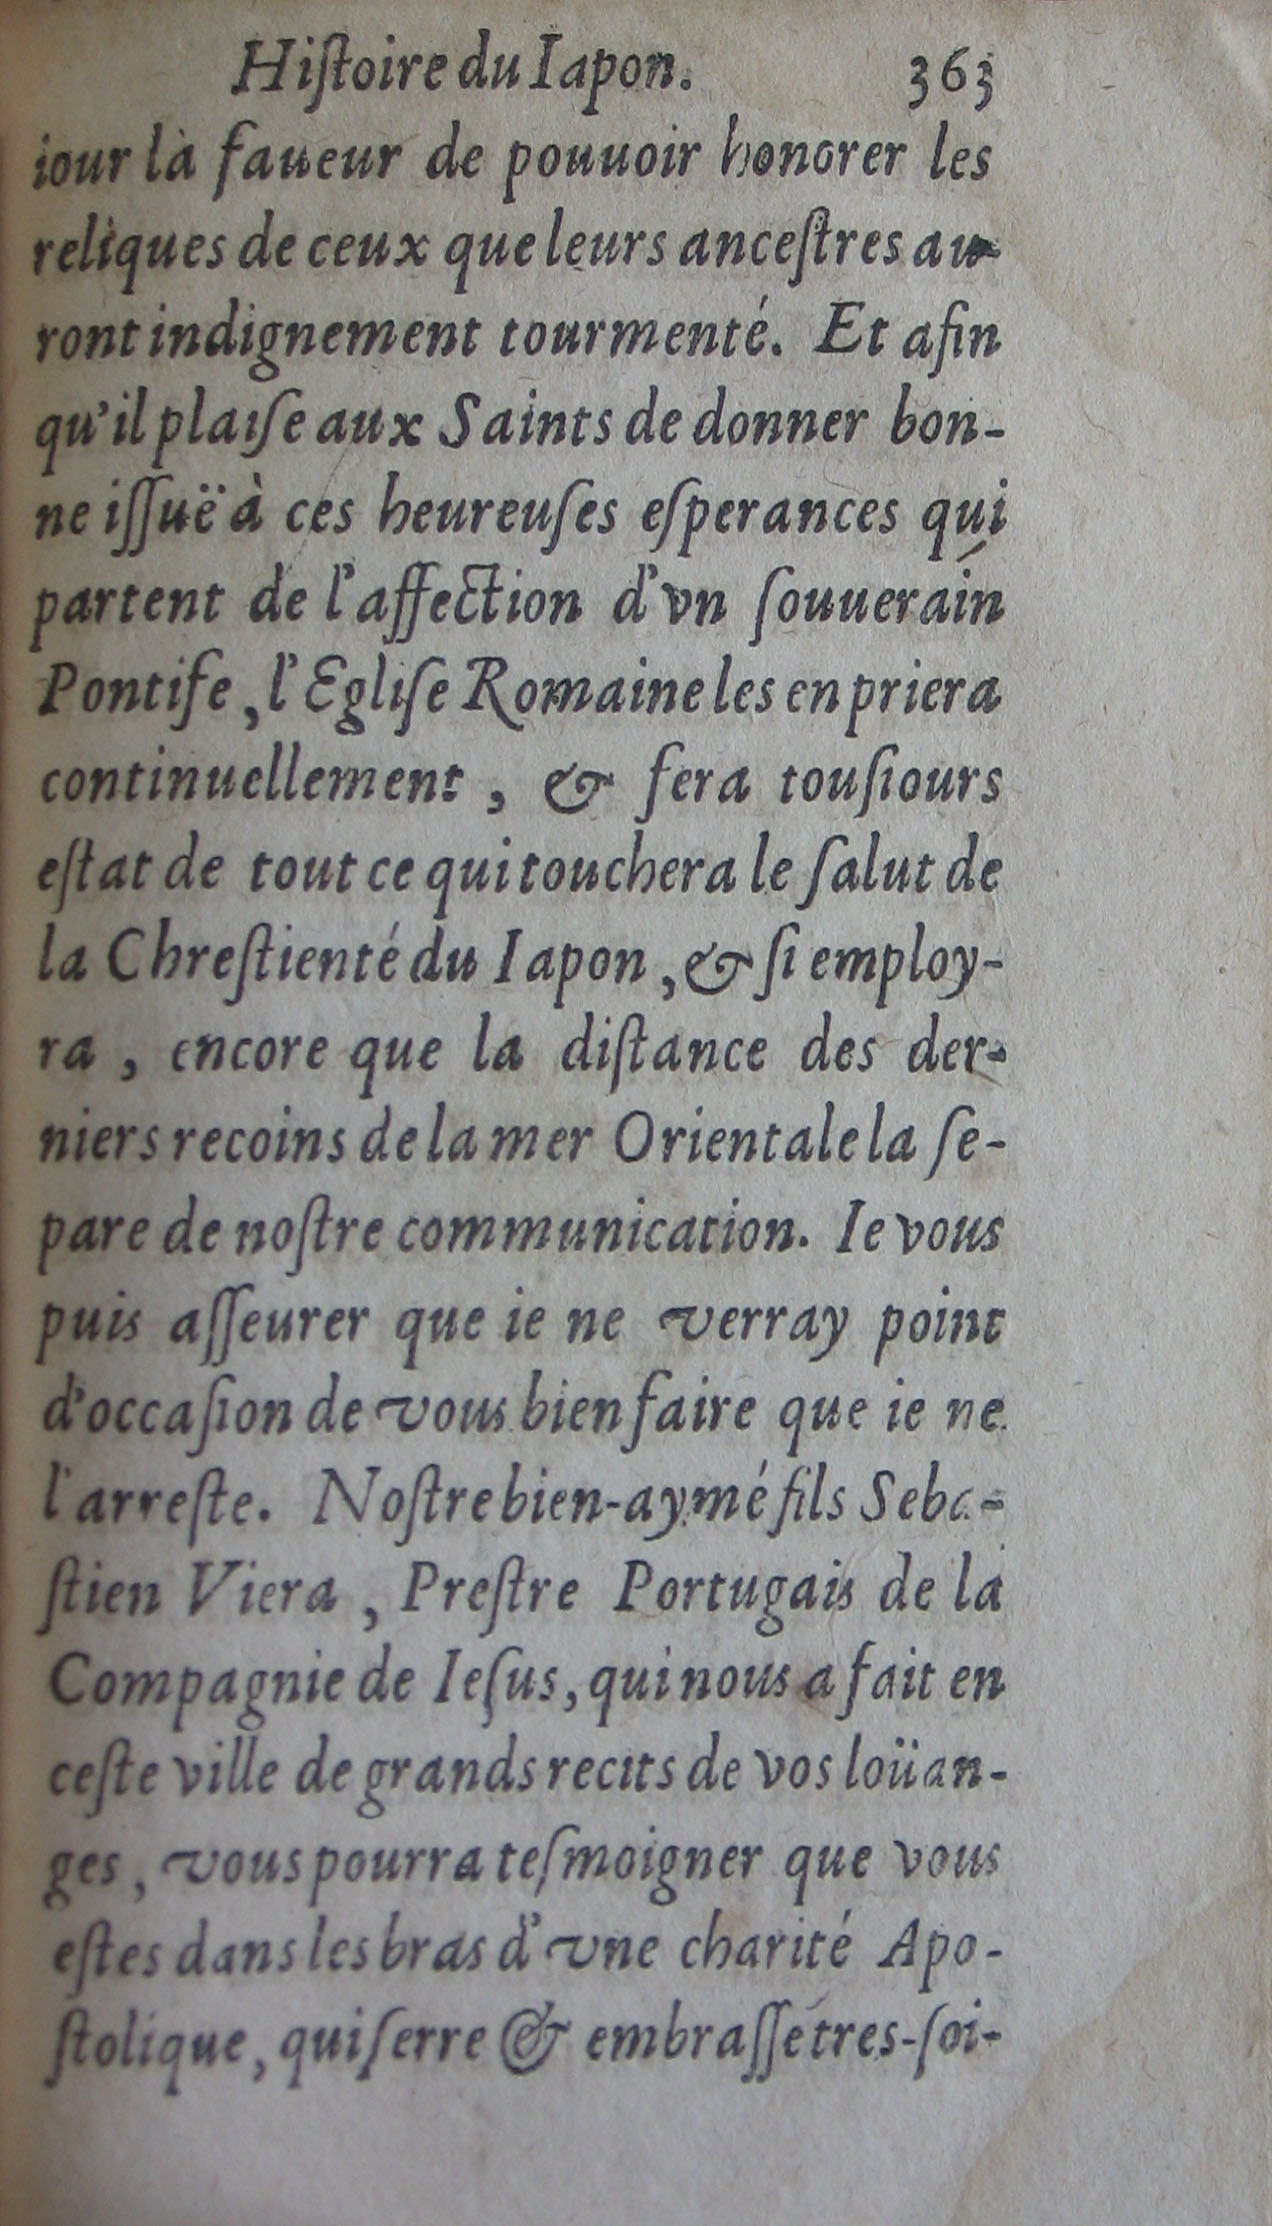 Hiſtoire du Iapon. 363
iour là faueur de pouuoir honorer les
reliques de ceux que leurs anceſtres au-
ront indignement tourmenté. Et afin
qu'il plaiſe aux Saints de donner bon-
ne iſſuë à ces heureuſes eſperances qui
partent de l'affection d'vn ſouuerain
Pontife, l'Egliſe Romaine les en priera
continuellement, & fera touſiours
eſtat de tout ce qui touchera le ſalut de
la Chreſtienté du Iapon, & ſi employ-
ra, encore que la diſtance des der-
niers recoins de la mer Orientale la ſe-
pare de noſtre communication. Ie vous
puis aſſeurer que ie ne verray point
d'occaſion de vous bien faire que ie ne
l'arreſte. Noſtre bien-aymé fils Seba-
ſtien Viera, Preſtre Portugais de la
Compagnie de Ieſus, qui nous a fait en
ceſte ville de grands recits de vos loüan-
ges, vous pourra teſmoigner que vous
eſtes dans les bras d'vne charité Apo-
ſtolique, qui ſerre & embraſſe tres-ſoi-